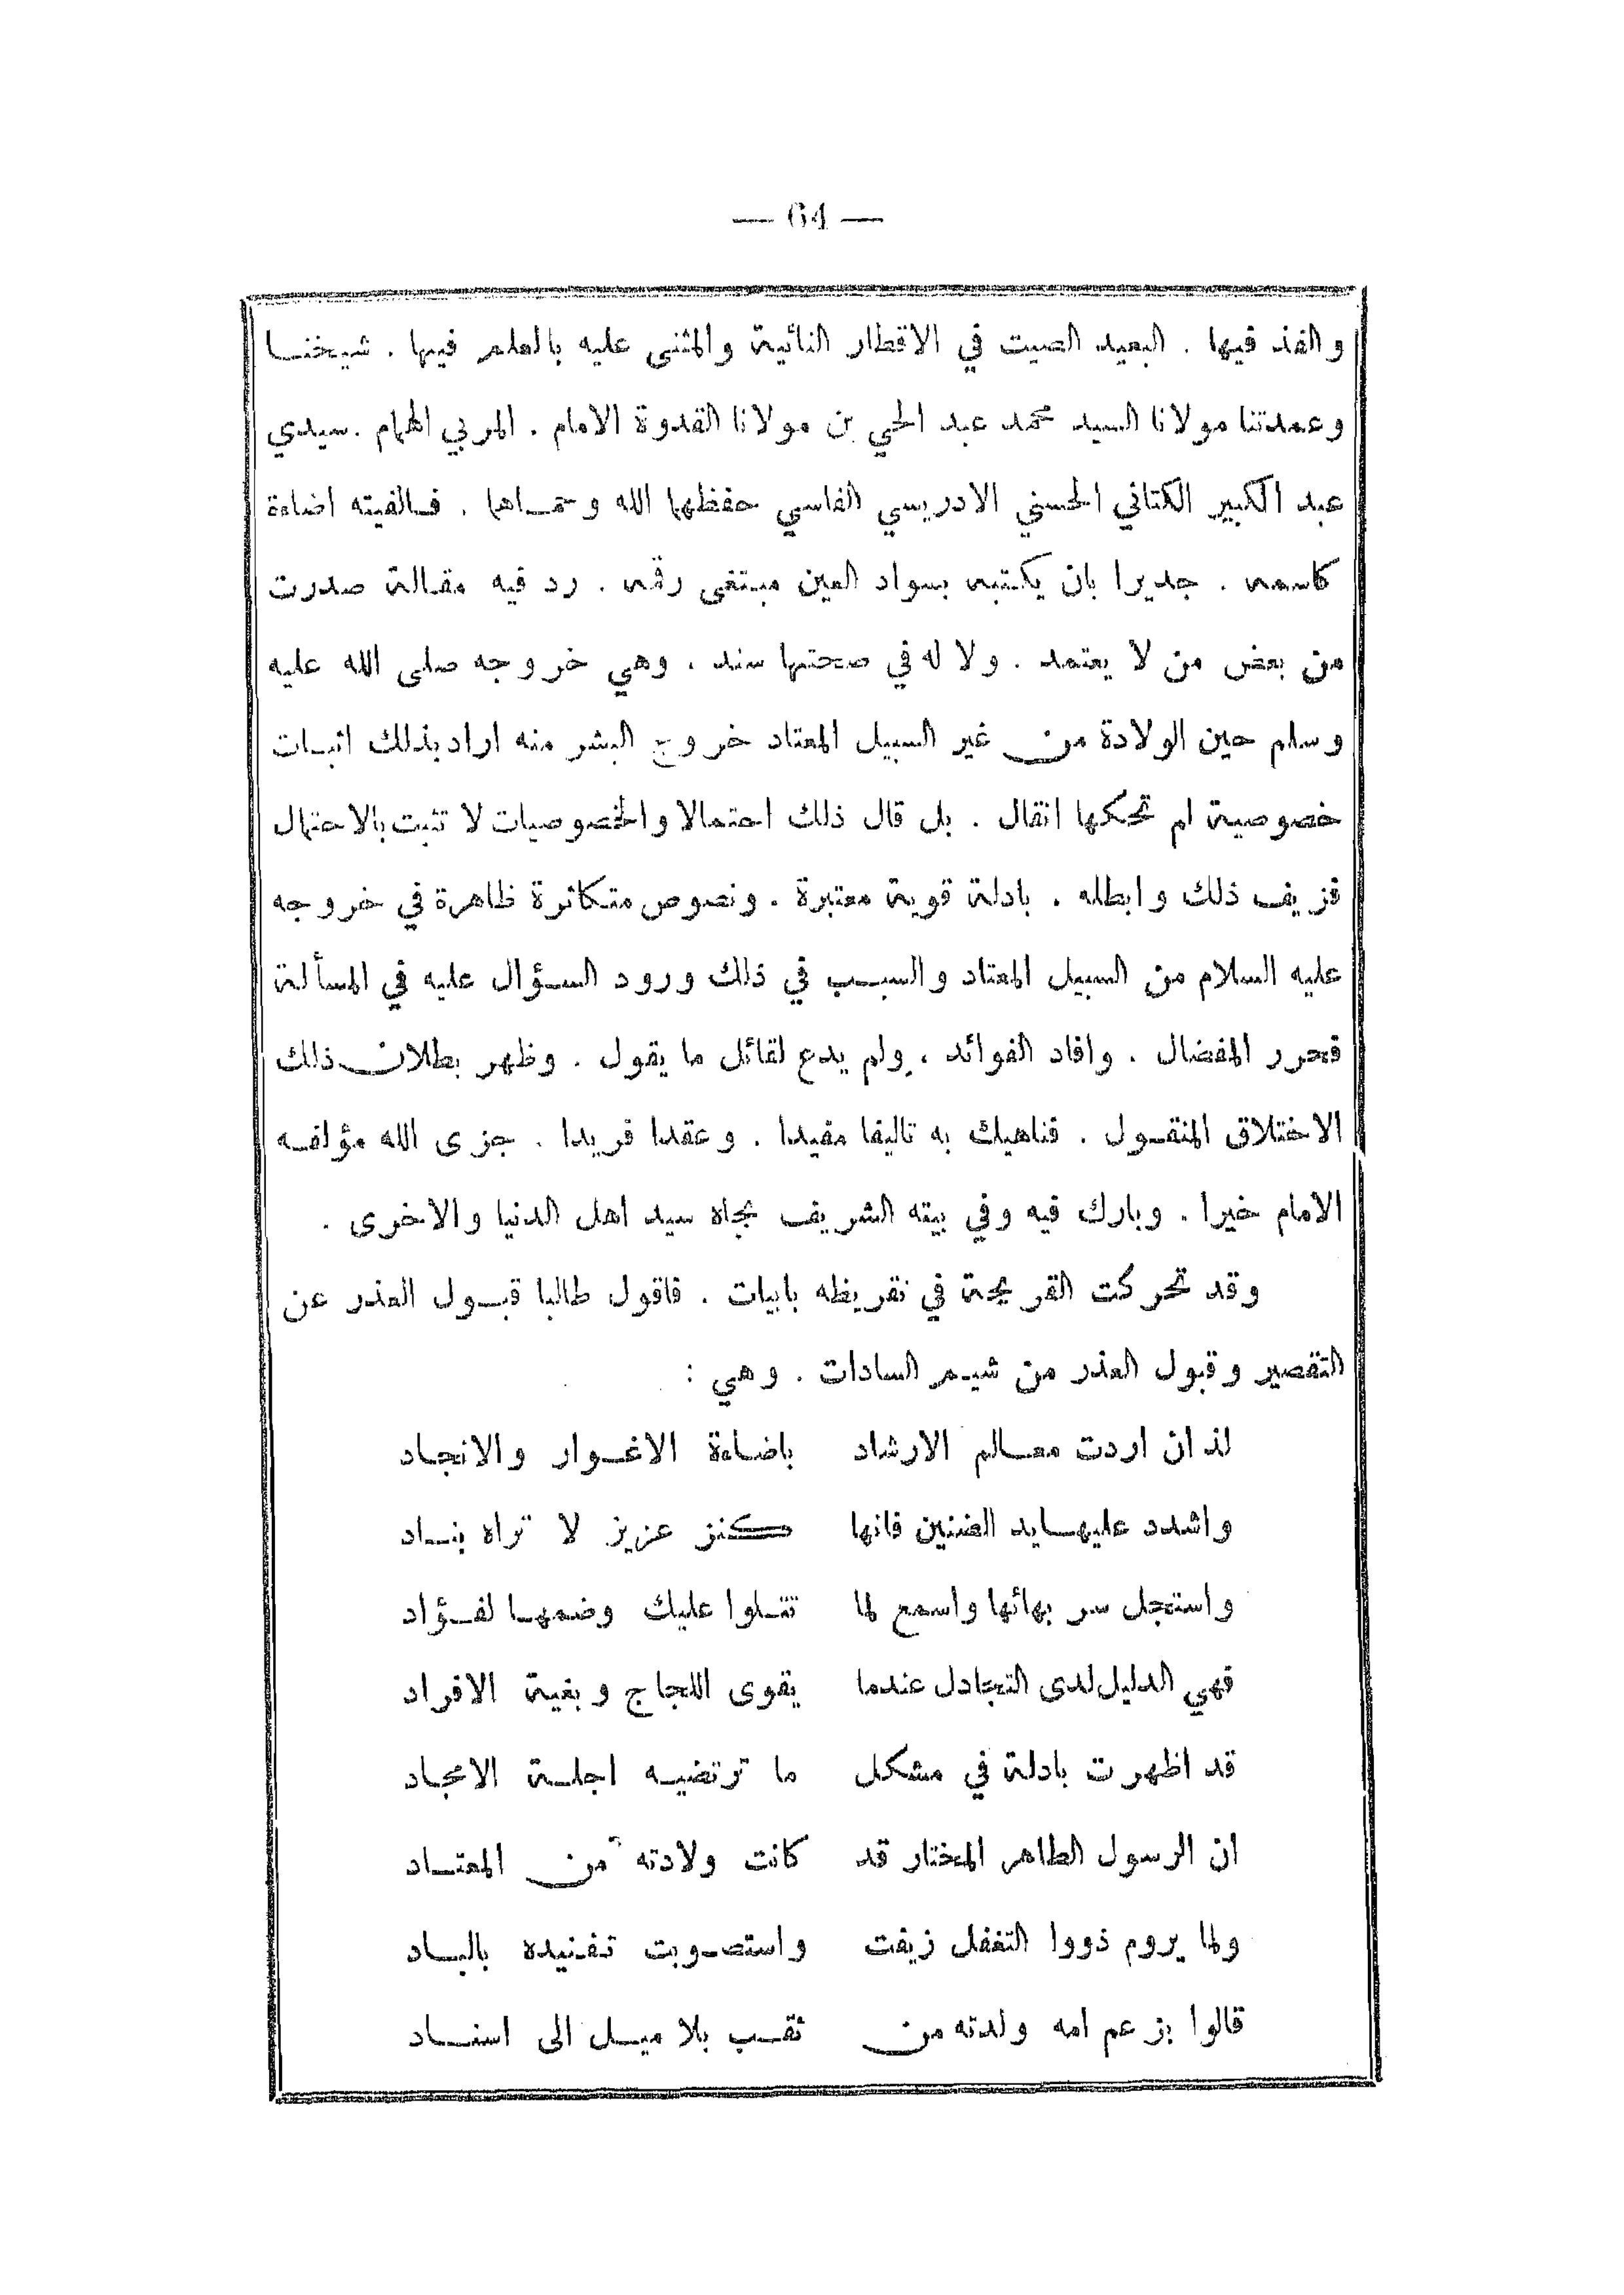 — 64 —
والفذ فيها . البعيد الصيت في الاقطار النائية والمثنى عليه بالعلم فيها . شيخنا
وعمدتنا مولانا السيد محمد عبد الحي بن مولانا القدوة الامام . المربي الهمام . سيدي
عبد الكبير الكتاني الحسني الادريسي الفاسي حفظهما الله وحماهما . فالفيته اضاءة
كاسمه . جديرا بان يكتبه بسواد العين مبتغى رقمه . رد فيه مقالة صدرت
من بعض من لا يعتمد . ولا له في صحتها سند . وهي خروجه صلى الله عليه
وسلم حين الولادة من غير السبيل المعتاد خروج البشر منه اراد بذلك اثبات
خصوصية لم تحكها انقال . بل قال ذلك احتمالا والخصوصيات لا تثبت بالاحتمال
فزيف ذلك وابطله . بادلة قوية معتبرة . ونصوص متكاثرة ظاهرة في خروجه
عليه السلام من السبيل المعتاد والسبب في ذلك ورود السؤال عليه في المسألة
فحرر المفضال . وافاد الفوائد . ولم يدع لقائل ما يقول . وظهر بطلان ذلك
الاختلاق المنقول . فناهيك به تاليفا مفيدا . وعقدا فريدا . جزى الله مؤلفه
الامام خيرا . وبارك فيه وفي بيته الشريف بجاه سيد اهل الدنيا والاخرى .
وقد تحركت القريحة في تقريظه بابيات . فاقول طالبا قبول العذر عن
التقصير وقبول العذر من شيم السادات . وهي :
لذ ان اردت معالم الارشاد باضاءة الاغوار والانجاد
واشدد عليها يد الضنين فانها كنز عزيز لا تراه بناد
واستجل سر بهائها واسمع لما تتلوا عليك وضمها لفؤاد
فهي الدليل لدى التجادل عندما يقوى اللجاج وبغية الافراد
قد اظهرت بادلة في مشكل ما ترتضيه اجلة الامجاد
ان الرسول الطاهر المختار قد كانت ولادته من المعتاد
ولما يروم ذووا التغفل زيفت واستصوبت تفنيده بالباد
قالوا بزعم امه ولدته من ثقب بلا ميل الى اسناد